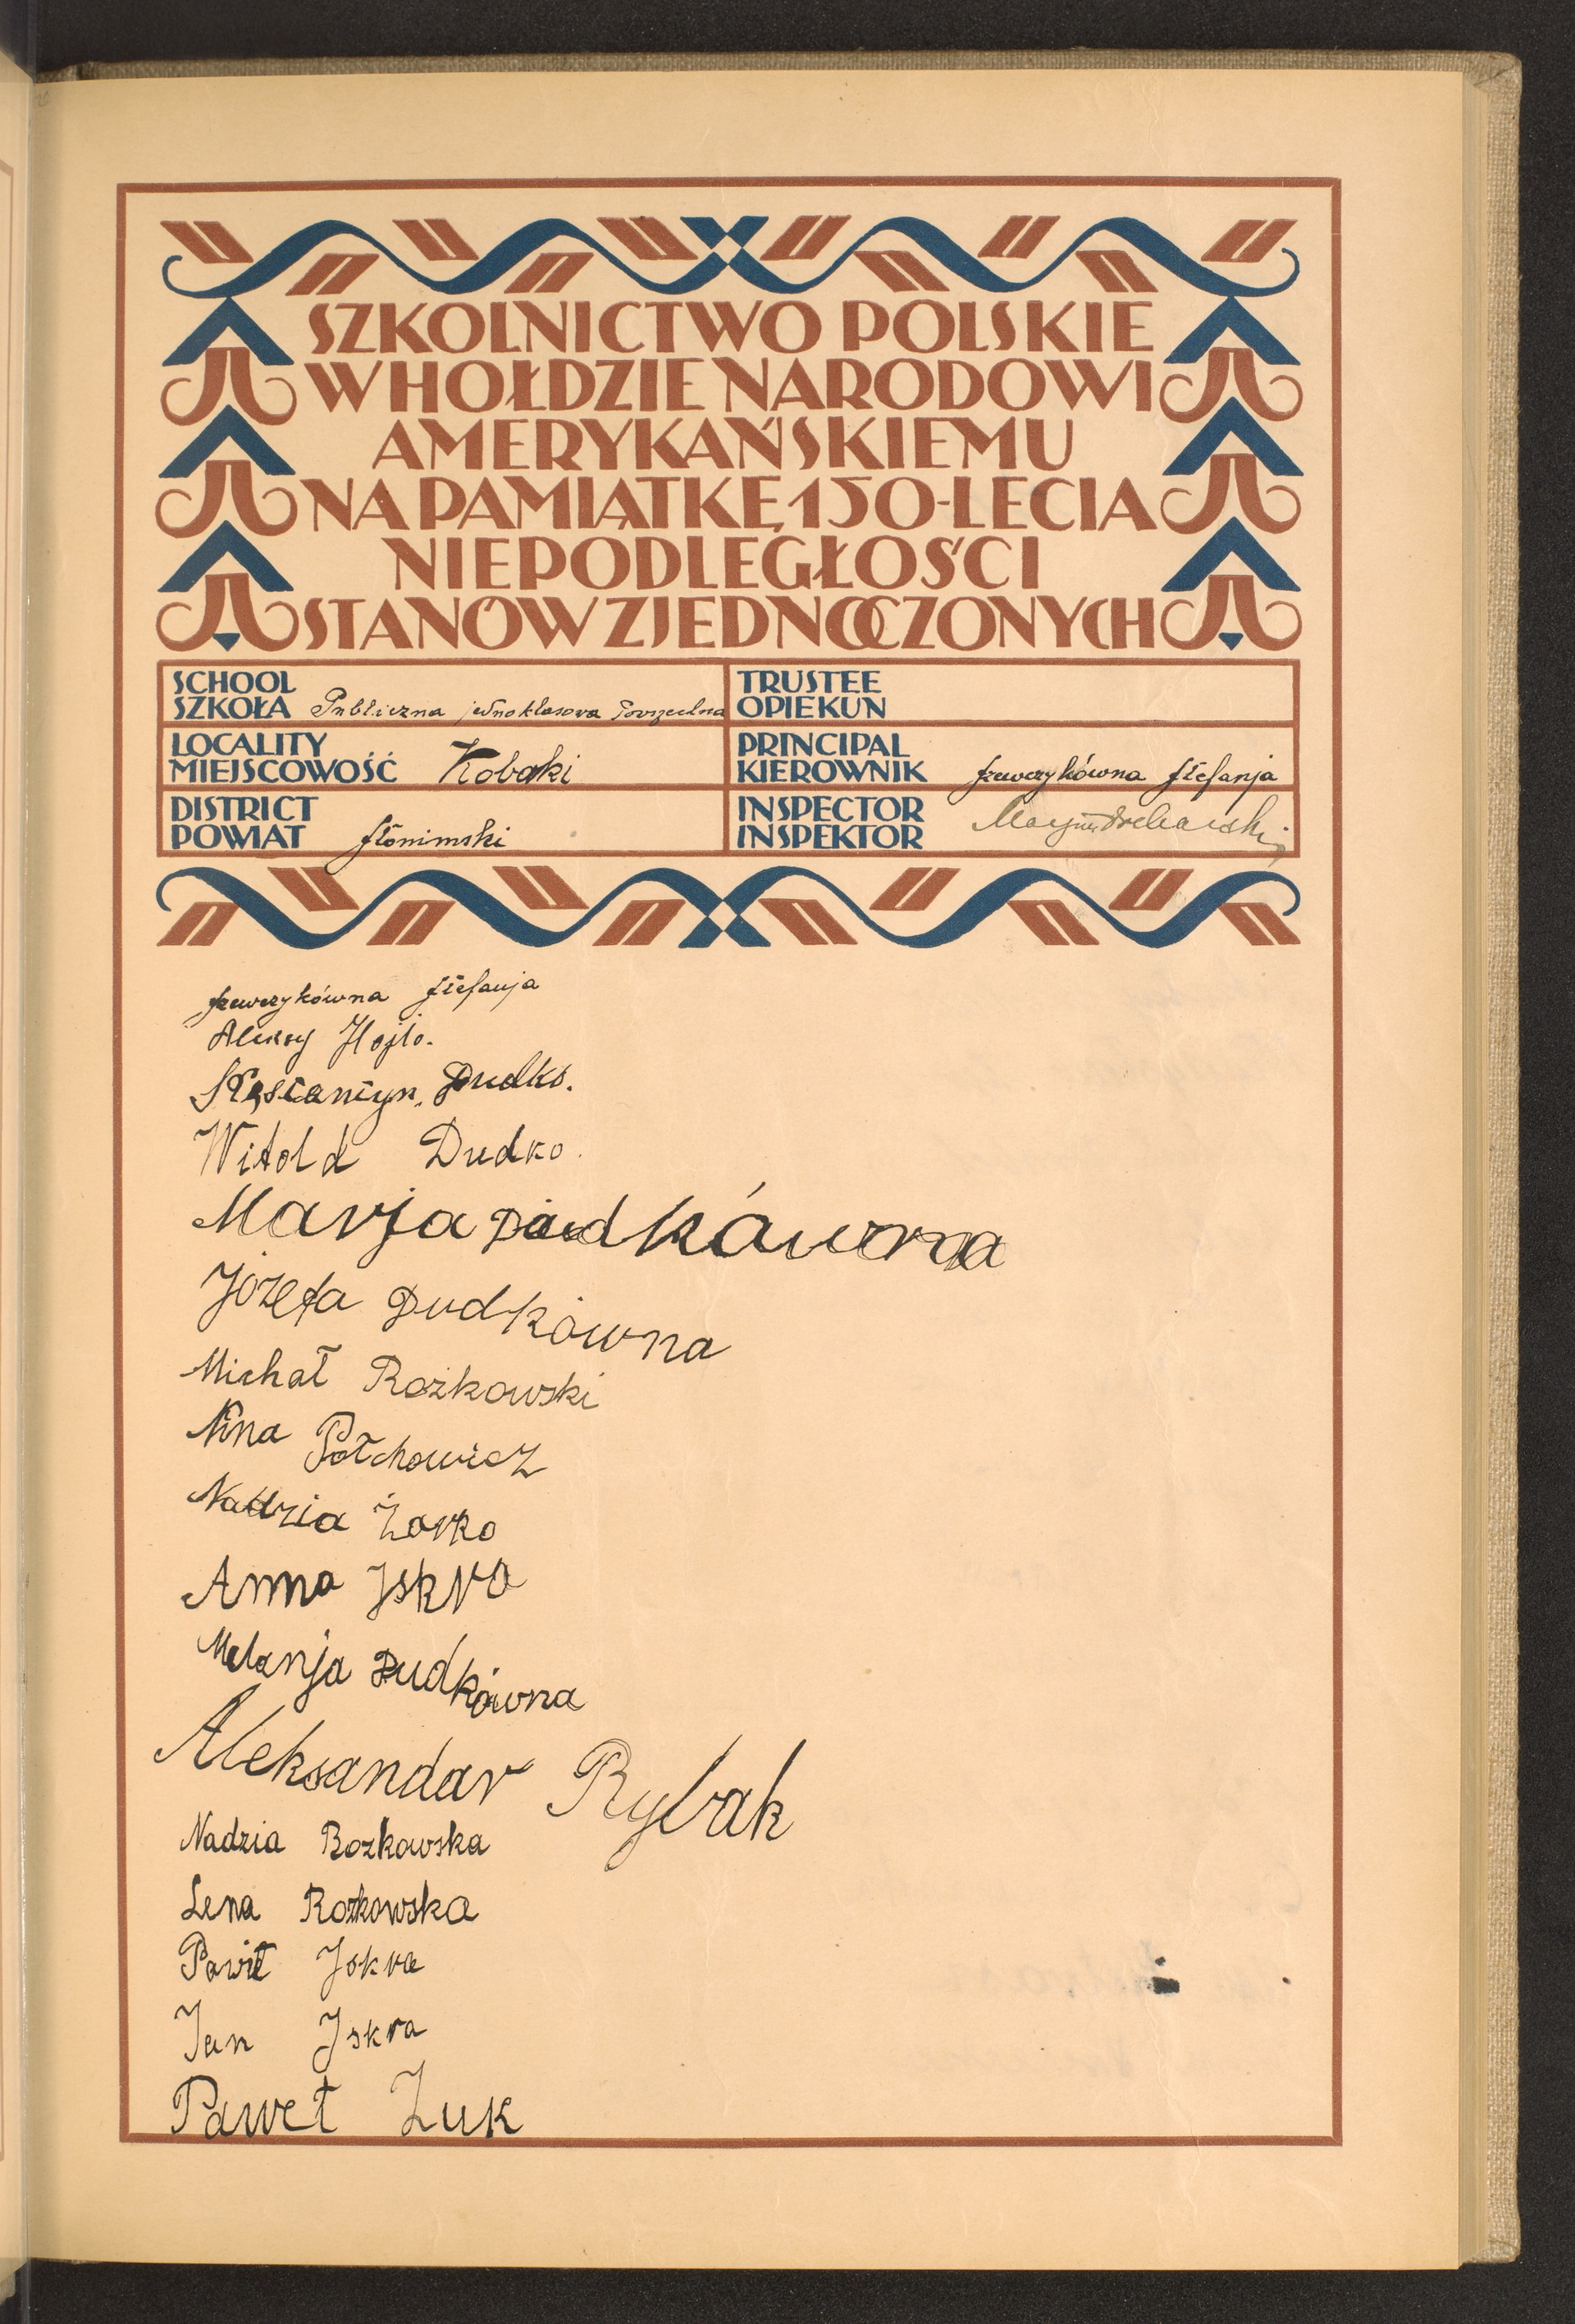 SZKOLNICTWO POLSKIE
W HOŁDZIE NARODOWI
AMERYKAŃSKIEMU
NA PAMIĄTKĘ 150-LECIA
NIEPODLEGŁOŚCI
STANÓW ZJEDNOCZONYCH
SCHOOL
SZKOŁA Publiczna jednoklasowa Powszechna
TRUSTEE
OPIEKUN
LOCALITY
MIEJSCOWOŚĆ Kobaki
PRINCIPAL
KIEROWNIK Szewczykówna Stefanja
DISTRICT
POWIAT Słonimski
INSPECTOR
INSPEKTOR
Szewczykówna Stefanja
Aleksy Hojło.
Kastantyn. Dudko.
Witold Dudko.
Marja Dudkówna
Józefa Dudkówna
Michał Rożkowski
Nina Połchowicz
Nadzia Żarko
Anna Iskra
Melanja Dudkówna
Aleksandar Rybak
Nadzia Rozkowska
Lena Rozkowska
Paweł Iskra
Jan Iskra
Paweł Żuk